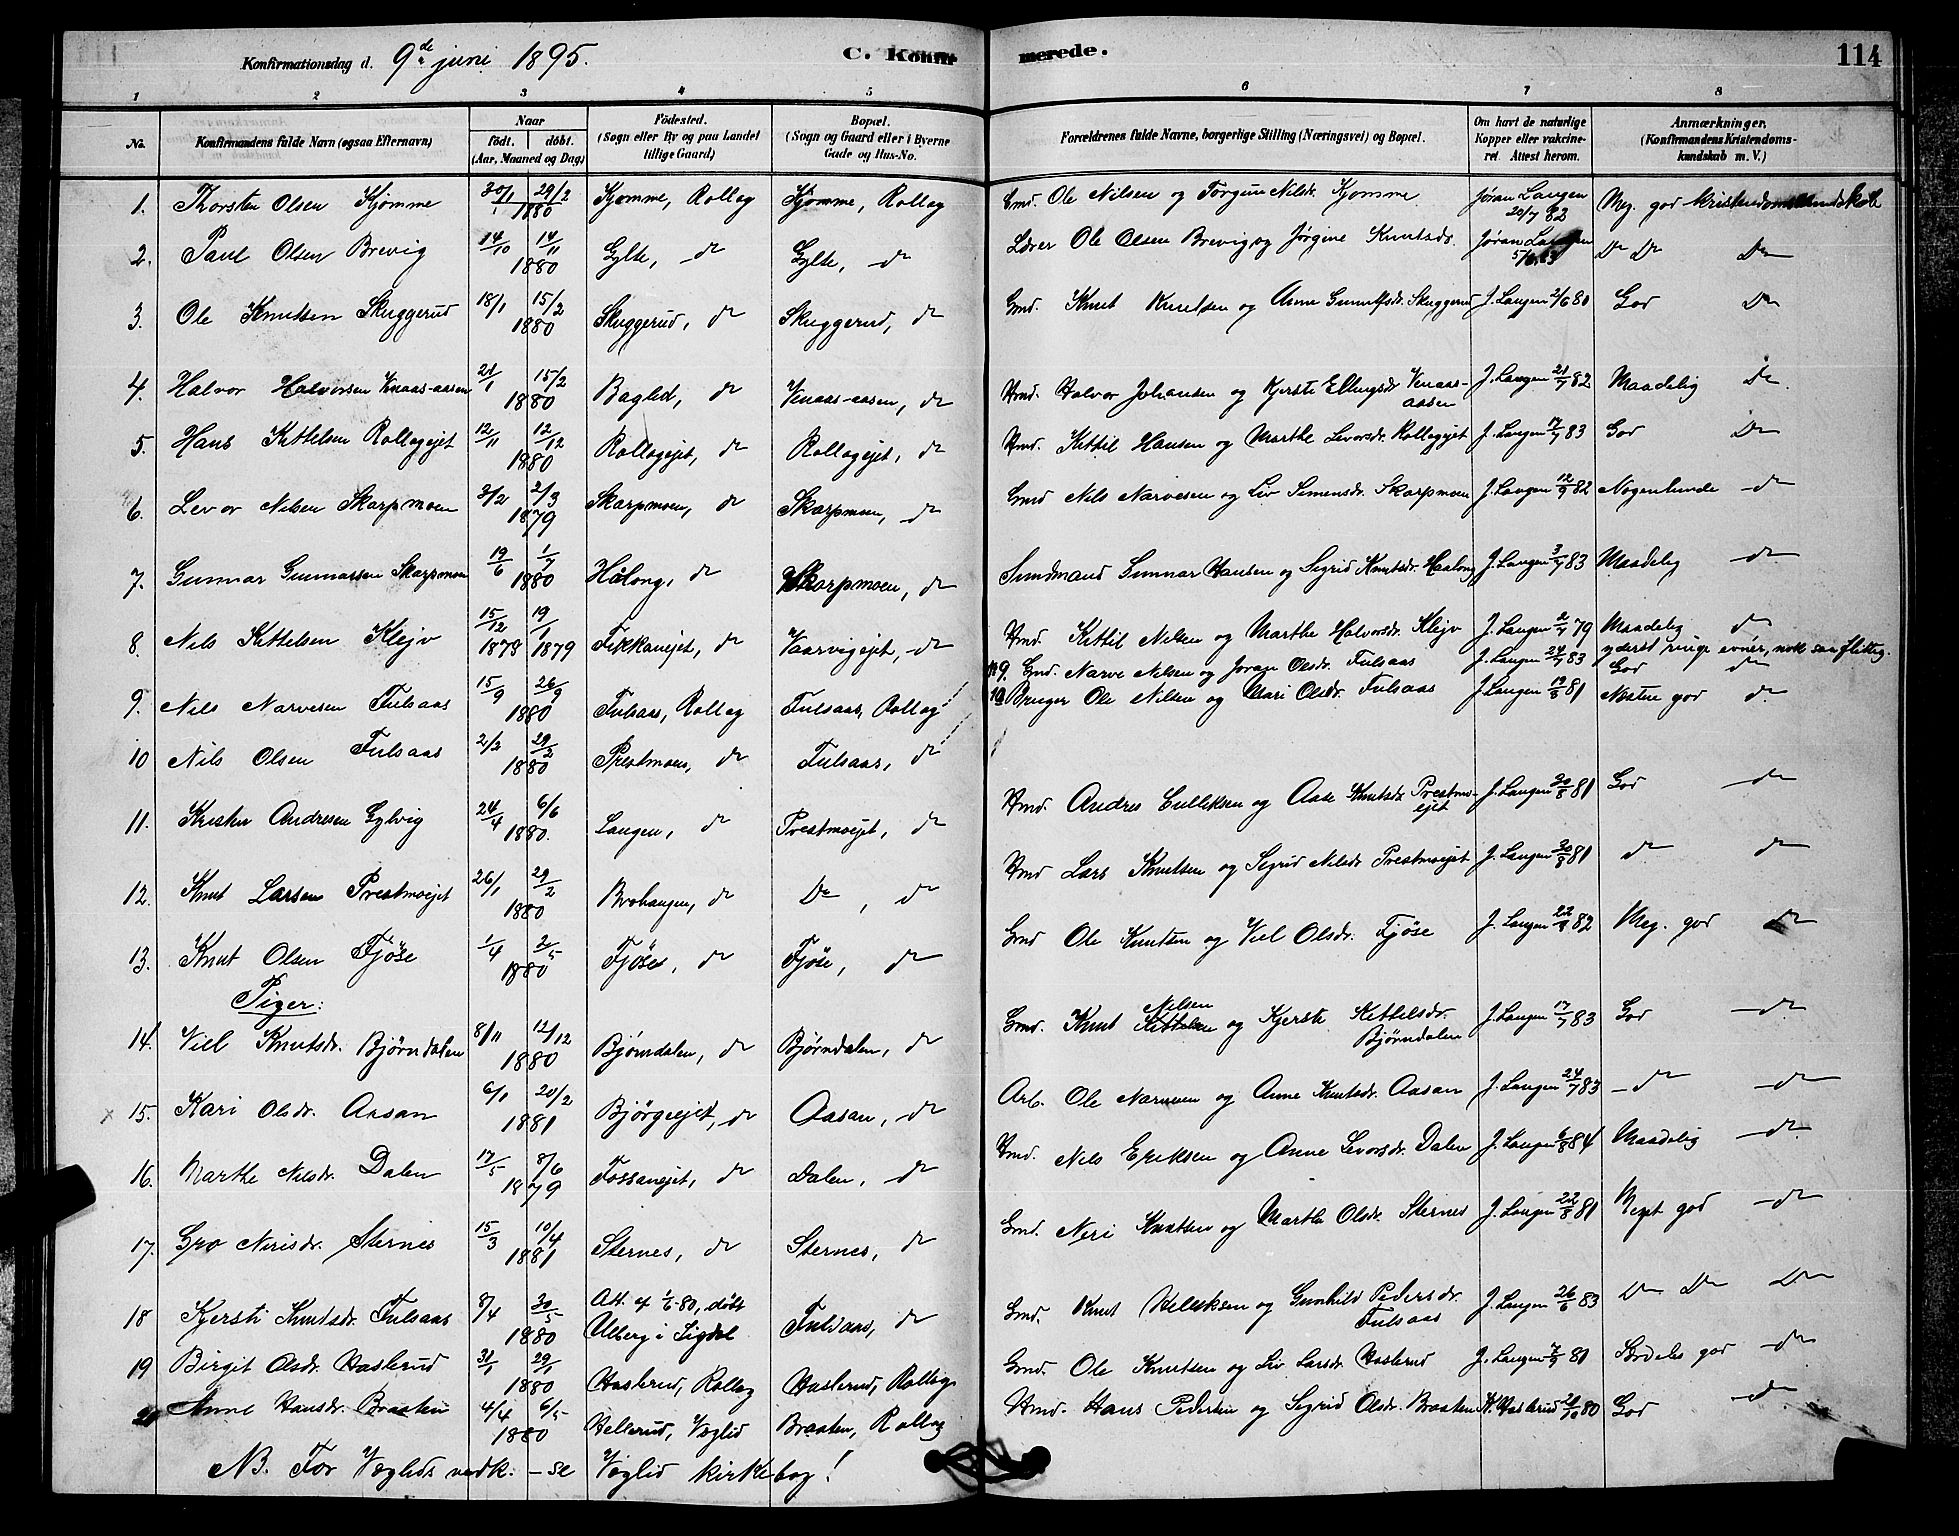 Konfirmationsdag d. 9de juni 1895. C. Konfirmerede. 114
1 2 3 4 5 6 7 8
No. Konfirmandens fulde Navn (ogsaa Efternavn) Naar født. døbt. (Aar, Maaned og Dag) Fødested. (Sogn eller By og paa Landet tillige Gaard) Bopæl. (Sogn og Gaard eller i Byerne Gade og Hus-No. Forældrenes fulde Navne, borgerlige Stilling (Næringsvei) og Bopæl. Om havt de naturlige Kopper eller vakcineret. Attest herom. Anmærkninger. (Konfirmandens Kristendomskundskab m. V.)
1. Thorsten Olsen Kjømme 30/1 29/2 1880 Kjømme, Rollag Kjømme, Rollag Gmd. Ole Nilsen og Torgun Nilsdr. Kjømme Jøran Langen 20/7 82 Meg. god kristendomskundskab
2. Paul Olsen Brevig 14/10 14/11 1880 Gylte, do Gylte, do Lærer Ole Olsen Brevig og Jørgine Knutsdr. Jøran Langen Do Do Do
3. Ole Knutsen Skuggerud 18/1 15/2 1880 Skuggerud, do Skuggerud, do Gmd. Knut Knutsen og Anne Gunnulfsdr. Skuggerud J. Langen 2/6 80 God Do
4. Halvor Halvorsen Venaas-aasen 21/1 15/2 1880 Baglid, do Venaas-aasen, do Hmd. Halvor Johansen og Kjersti Ellingsdr Venaas-aasen J. Langen 21/7 82 Maadelig Do
5. Hans Kittelsen Rollagejet 12/11 12/12 1880 Rollagejet, do Rollagejet, do Hmd. Kittil Hansen og Marthe Levorsdr. Rollagejet J. Langen 17/7 83 God Do
6. Levor Nilsen Skarpmoen 3/2 2/3 1879 Skarpmoen, do Skarpmoen, do Gmd Nils Narvesen og Liv Simensdr. Skarpmoen J. Langen 12/9 82 Nogenlunde do
7. Gunnar Gunnarsen Skarpmoen 19/6 1/7 1880 Hålong, do Skarpmoen, do Sundmand Gunnar Hansen og Sigrid Knutsdr. Haalong J. Langen 3/7 83 Maadelig do
8. Nils Kittelsen Klejv 15/12 1878 19/1 1879 Fikkanejet, do Vaarvigejet, do Hmd. Kittil Nilsen og Marthe Halvorsdr. Klejv J. Langen 2/7 79 Maadelig do
yderst ringe evner, nok saa flittig.
9. Nils Narvesen Fulsaas 15/9 26/9 1880 Fulsaas, Rollag Fulsaas, Rollag 9. Gmd. Narve Nilsen og Joran Olsdr. Fulsaas J. Langen 24/7 83 God do
10 Nils Olsen Fulsaas 2/2 29/2 1880 Prestmoen, do Fulsaas, do 10 Bruger Ole Nilsen og Mari Olsdr. Fulsaas J. Langen 19/8 81 Næsten god do
11. Kristen Andresen Gylvig 24/4 6/6 1880. Langen, do Prestmoejet, do Hmd. Andres Eulliksen og Aase Knutsdr Prestmoejet J. Langen 30/8 81 God do
12. Knut Larsen Prestmoejet 26/1 29/2 1880 Brohaugen, do Do, do Hmd Lars Knutsen og Sigrid Nilsdr Prestmoejet J. Langen 30/8 81 do do
13. Knut Olsen Fjøse 1/4 2/5 1880 Fjøse, do Fjøse, do Gmd Ole Knutsen og Viel Olsdr. Fjøse J. Langen 82 Meg. god do
Piger:
14. Viel Knutsdr. Bjørndalen 8/11 12/12 1880 Bjørndalen, do Bjørndalen, do Gmd. Knut Nilsen og Kjersti Kittelsdr. Bjørndalen J. Langen 17/7 83 God do
x 15. Kari Olsdr. Aasan 6/1 20/2 1881 Bjørgeejet, do Aasan, do Arb. Ole Narvesen og Anne Knutsdr. Aasan J. Langen 24/7 83 do do
16. Marthe Nilsdr. Dalen 17/5 8/6 1879 Fossanejet, do Dalen, do Hmd. Nils Eriksen og Anne Levorsdr. Dalen J. Langen 6/8 84 Maadelig do
17. Gro Nirisdr. Sternes 15/3 10/4 1881 Sternes, do Sternes, do Gmd. Neri Knutsen og Marthe Olsdr. Sternes J. Langen 22/8 81 Meget god do
18 Kjersti Knutsdr. Fulsaas 8/4 30/5 1880 Att. af 1/6-80, døbt Ulberg i Sigdal Fulsaas, do Gmd. Knut Helliksen og Gunhild Pedersdr. Fulsaas J. Langen 26/6 83 Do Do Do
19 Birgit Olsdr. Haslerud 31/1 29/1 1880 Haslerud, Rollag Haslerud, Rollag Gmd. Ole Knutsen og Liv Larsdr. Haslerud J. Langen 7/9 81 Særdeles god do
20 Anne Hansdr. Braaten 4/4 6/5 1880 Hellerud, Væglid Braaten, Rollag Hmd. Hans Pedersen og Sigrid Olsdr. Braaten K. Haslerud 80 God do
NB. For Væglids vedk. – se Væglid kirkebog!